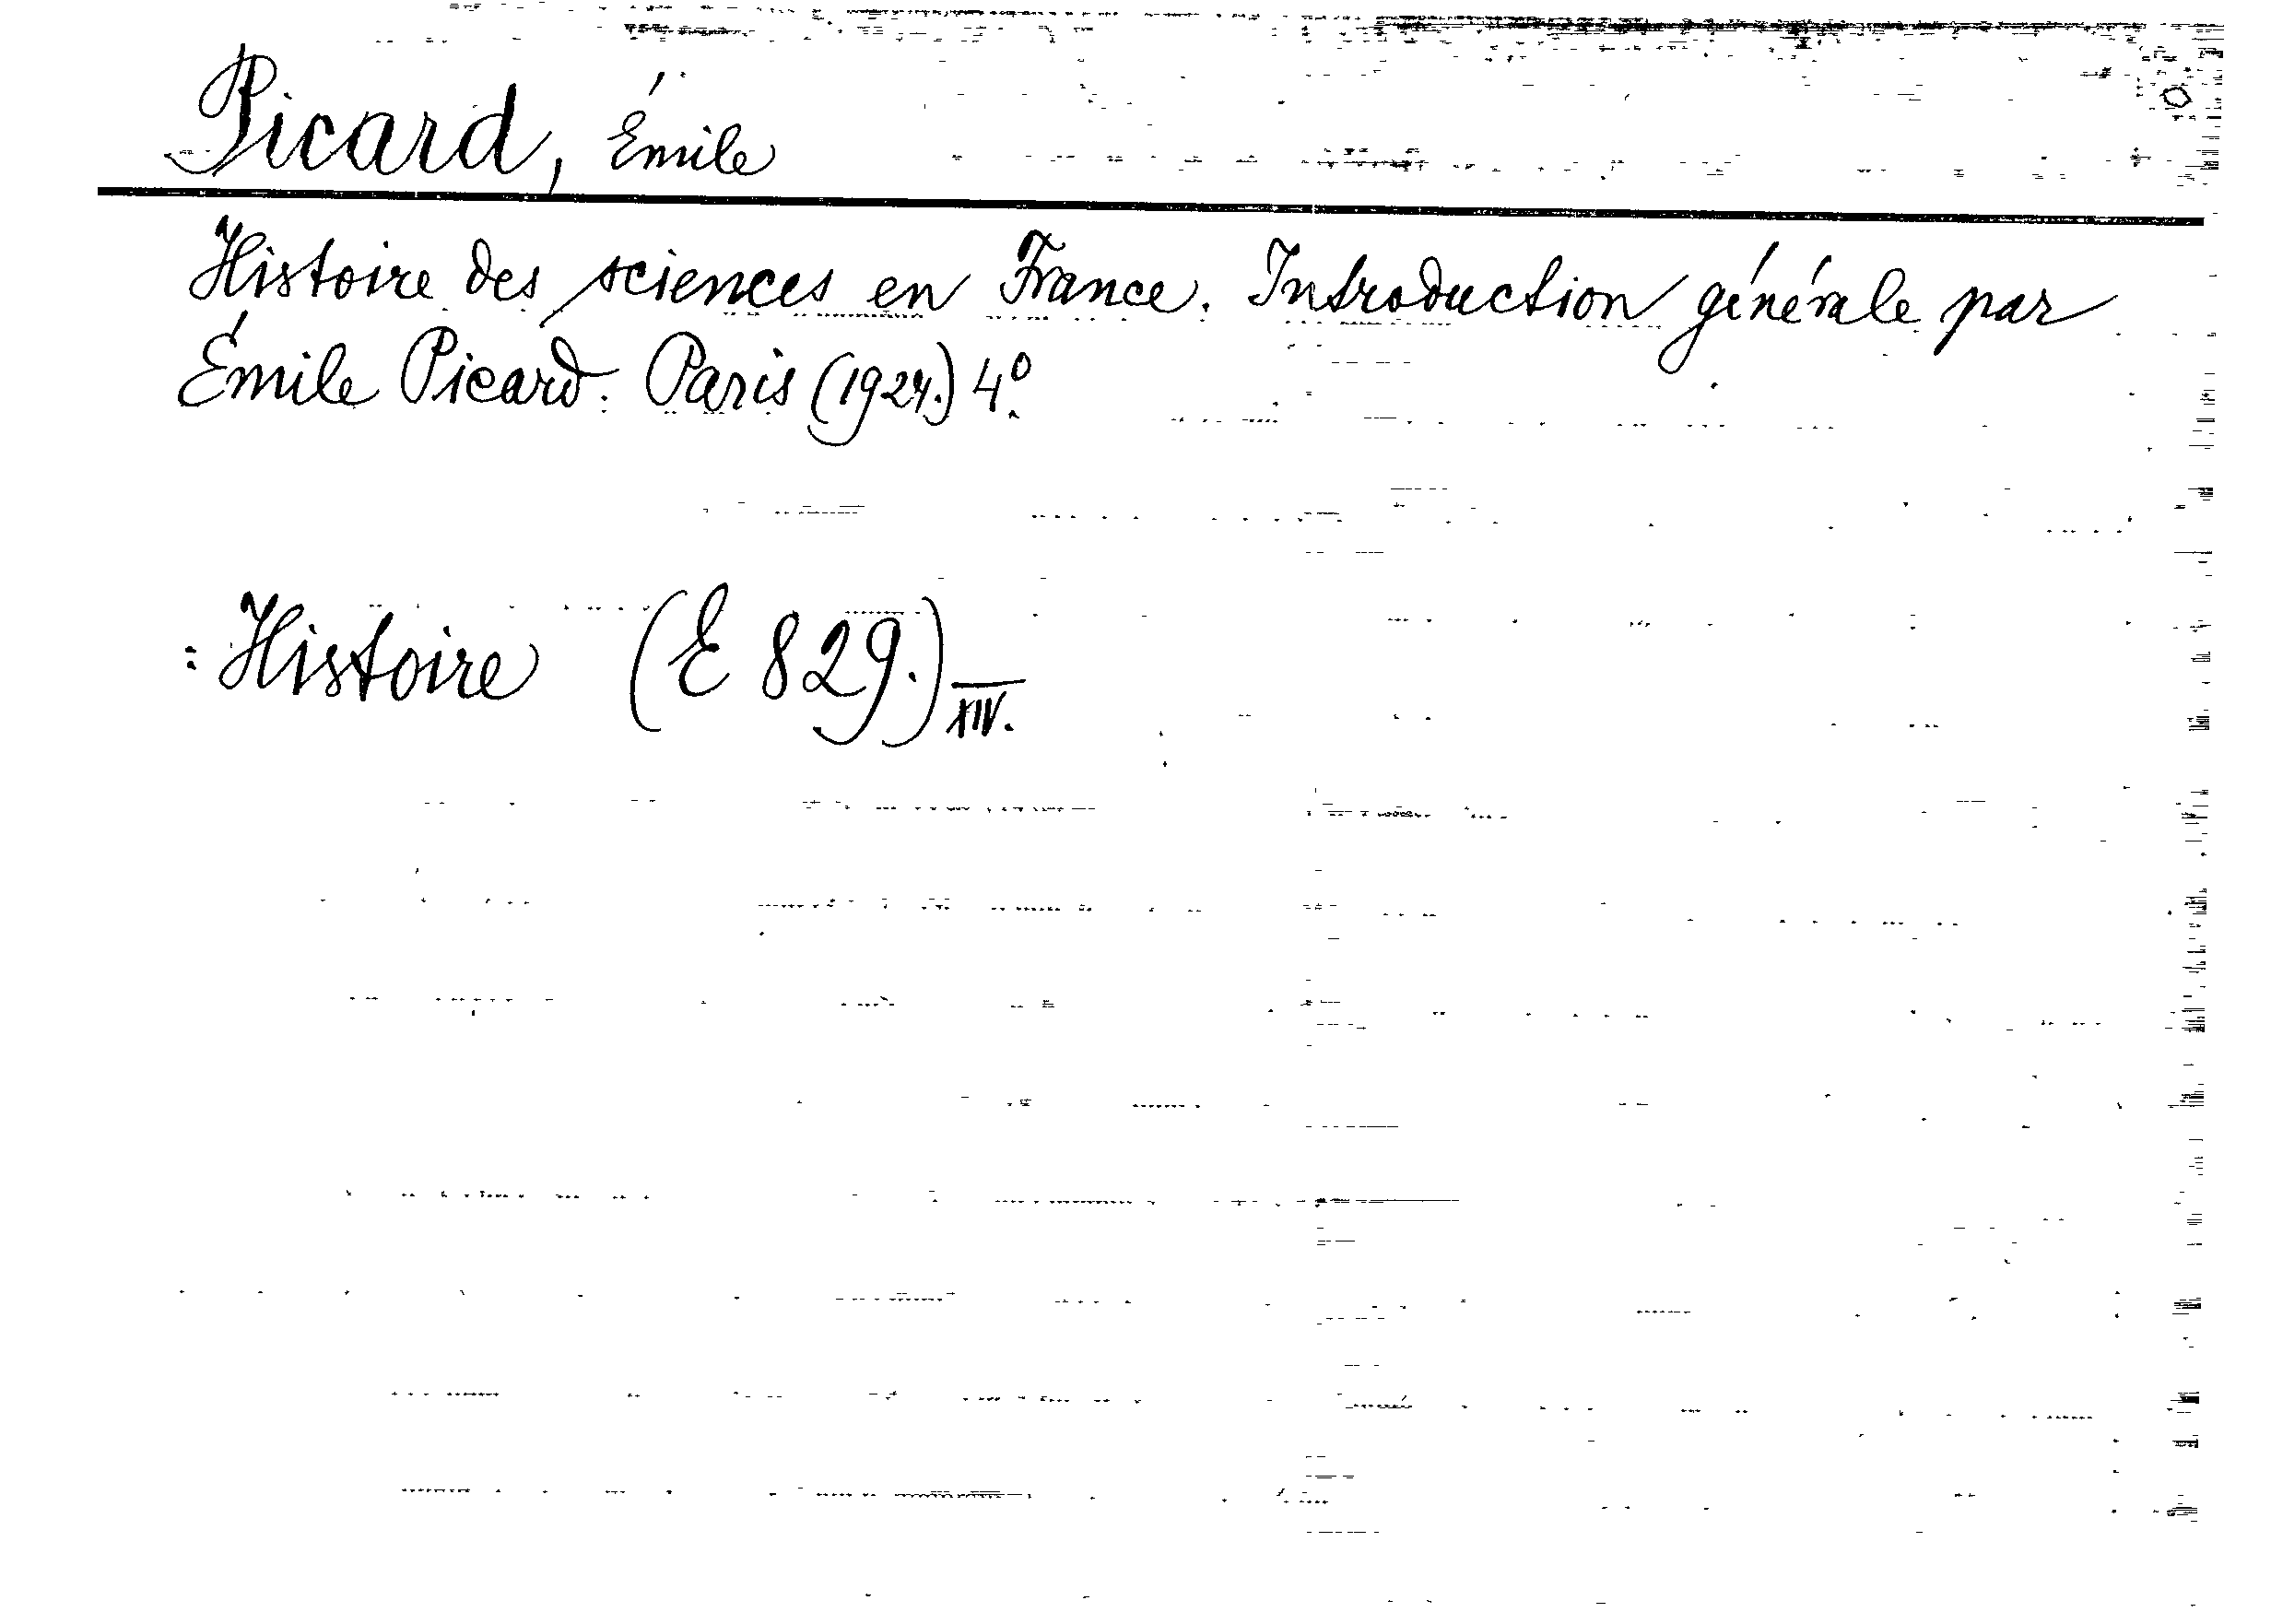 Picard, Émile
Histoire des sciences en France. Introduction générale par
Émile Picard. Paris (1924.) 4º.
: Histoire (E 829.) XIV.